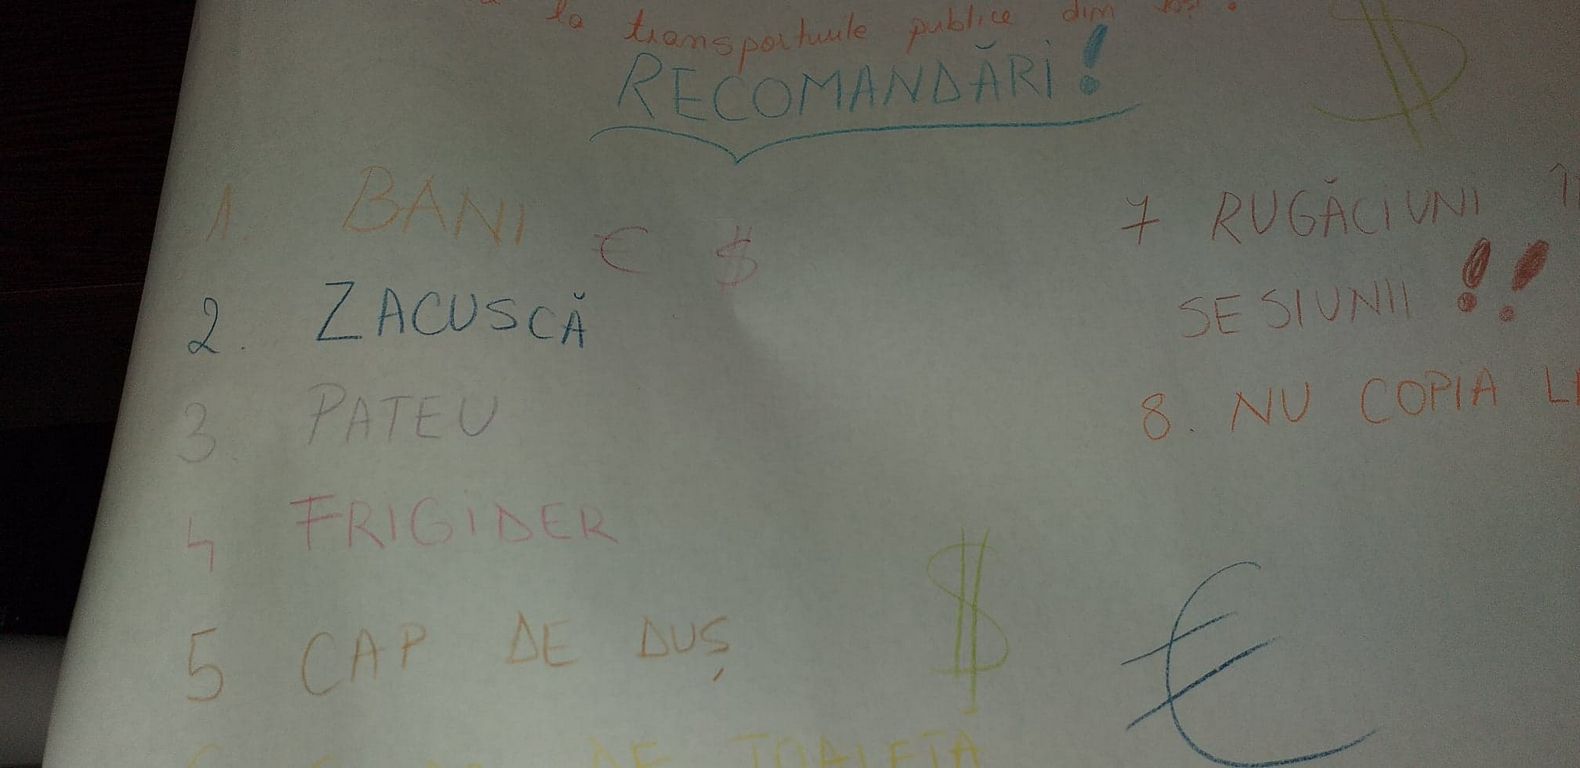 la transporturile publice din Iași.
RECOMANDĂRI!
1. BANI € $
2. ZACUSCĂ
3. PATEU
4 FRIGIDER
5 CAP DE DUȘ
DE TOALETĂ
7 RUGĂCIUNI
SESIUNII !!
8. NU COPIA
$
$
€